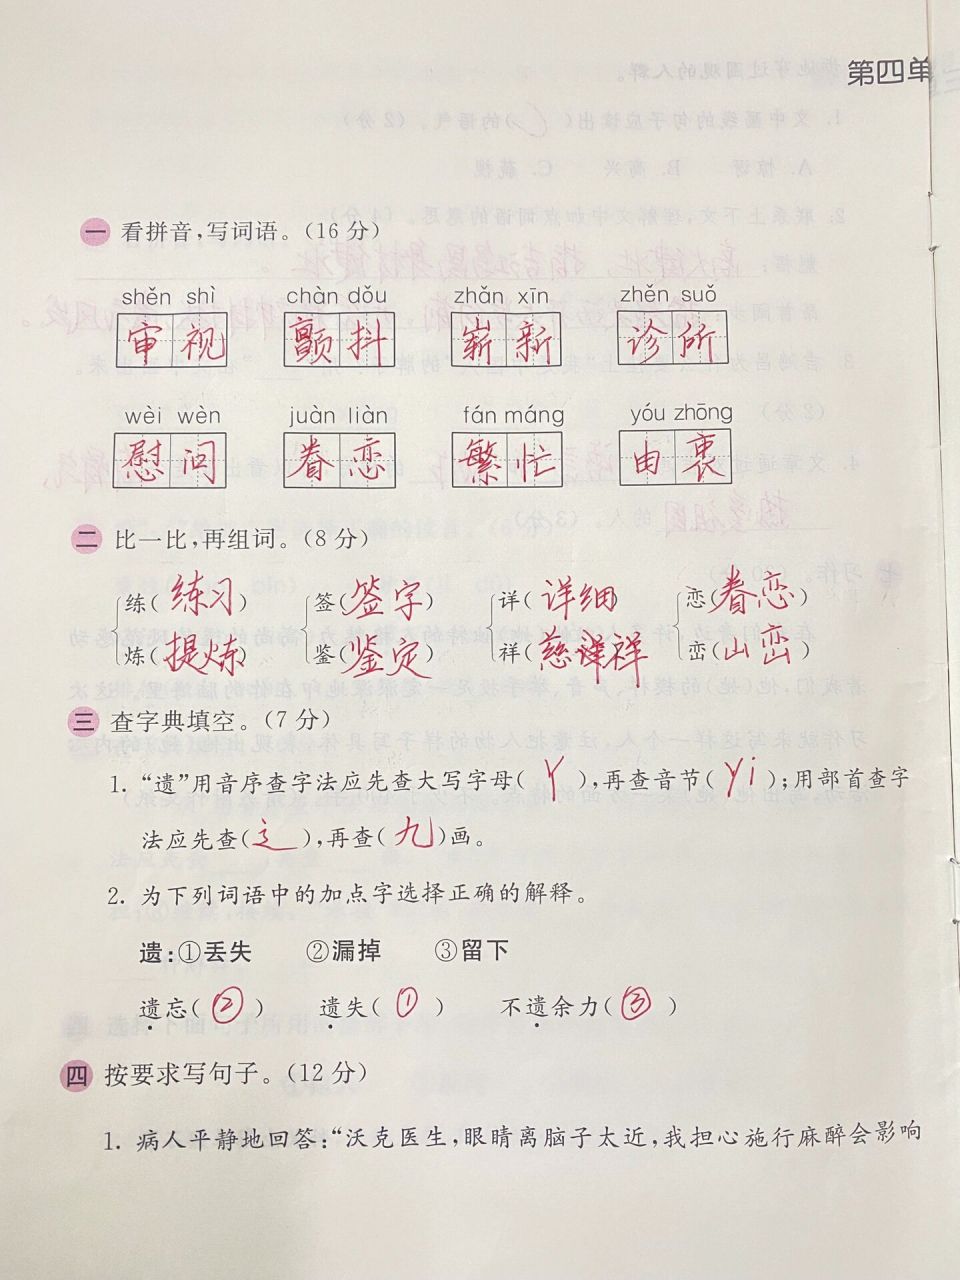 第四单
一 看拼音,写词语。(16分)
shěn shì chàn dǒu zhǎn xīn zhěn suǒ
审视 颤抖 崭新 诊所
wèi wèn juàn liàn fán máng yóu zhōng
慰问 眷恋 繁忙 由衷
二 比一比,再组词。(8分)
练(练习) 签(签字) 详(详细) 恋(眷恋)
炼(提炼) 鉴(鉴定) 祥(慈祥) 峦(山峦)
三 查字典填空。(7分)
1. “遗”用音序查字法应先查大写字母(Y),再查音节(yi);用部首查字
法应先查(辶),再查(九)画。
2. 为下列词语中的加点字选择正确的解释。
遗:①丢失 ②漏掉 ③留下
遗忘(②) 遗失(①) 不遗余力(③)
四 按要求写句子。(12分)
1. 病人平静地回答:“沃克医生,眼睛离脑子太近,我担心施行麻醉会影响